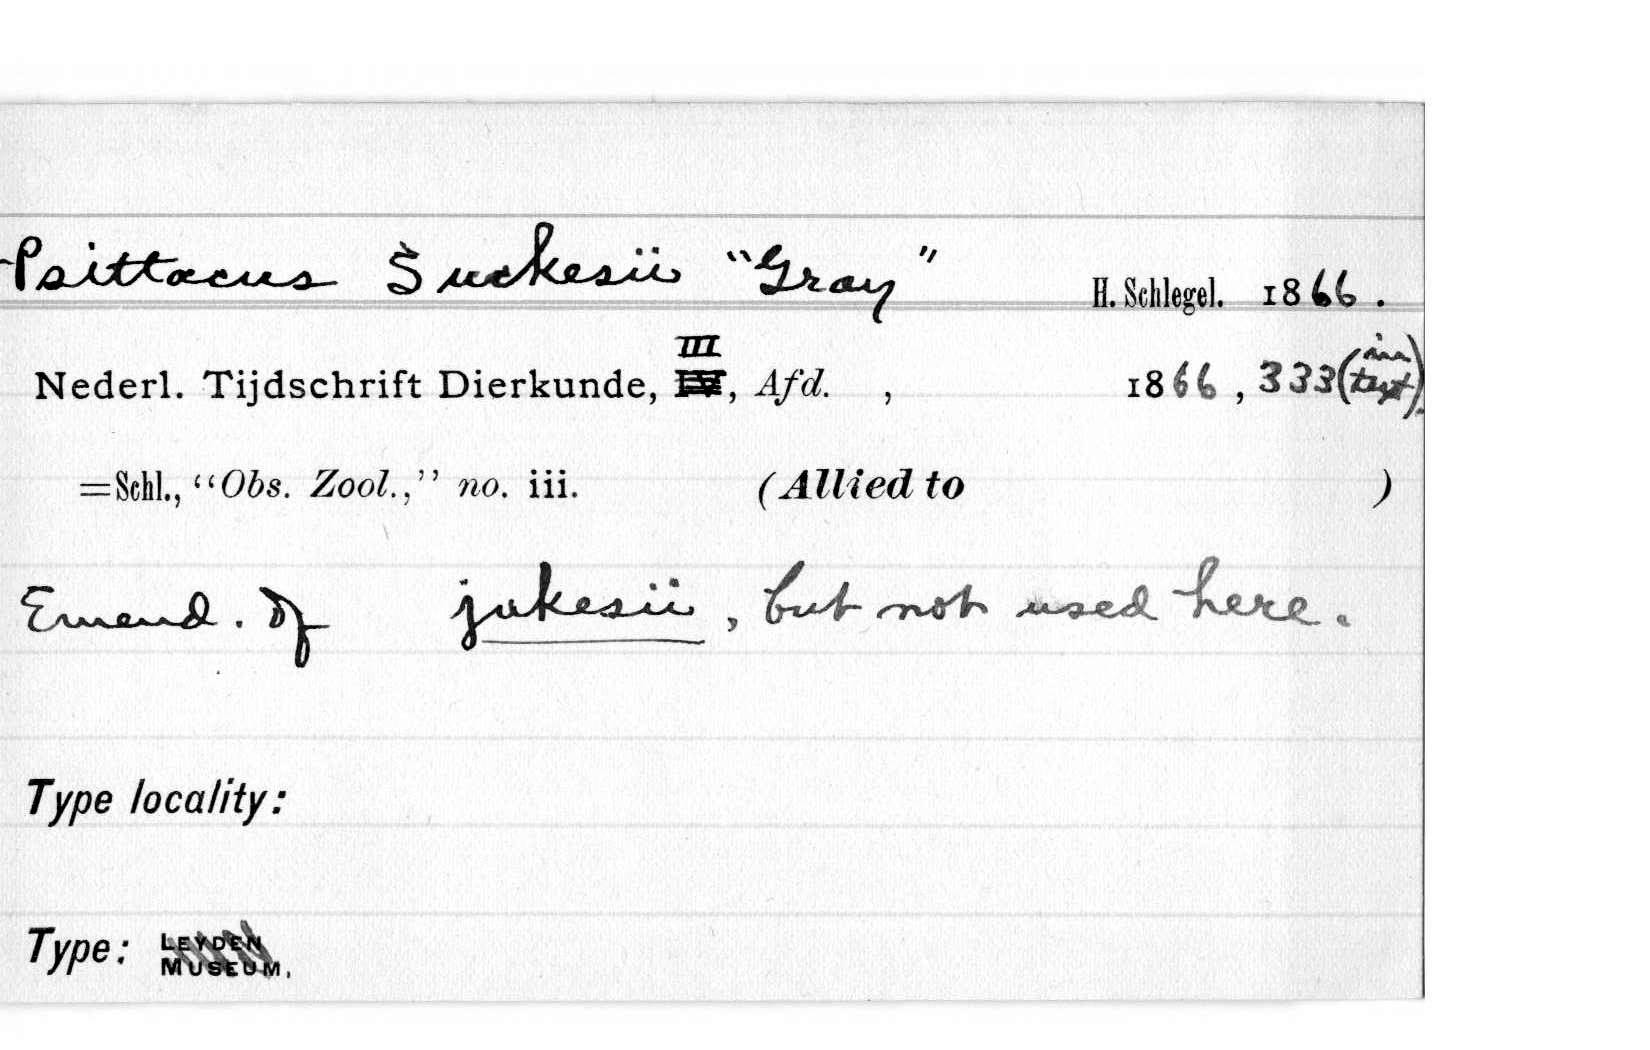 Psittacus Suckesii "Gray" H. Schlegel. 1866.
III
Nederl. Tijdschrift Dierkunde, IV, Afd. , 1866, 333 (in text).
=Schl., "Obs. Zool.," no. iii. (Allied to )
Emend. of jukesii, but not used here.
Type locality:
Type: LEYDEN
MUSEUM.